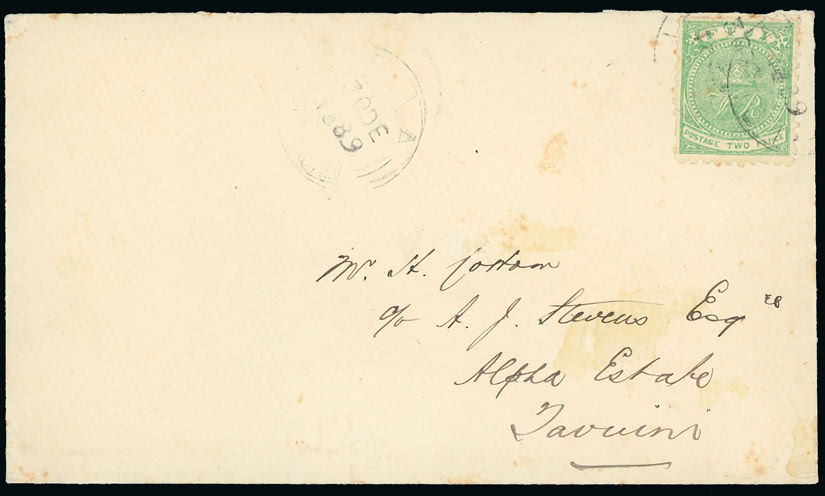 FIJI
VR
POSTAGE TWO PENCE
DE
1889
Mr. H.
c/o A. J. Stevens Esqre
Alpha Estate
Tavuini